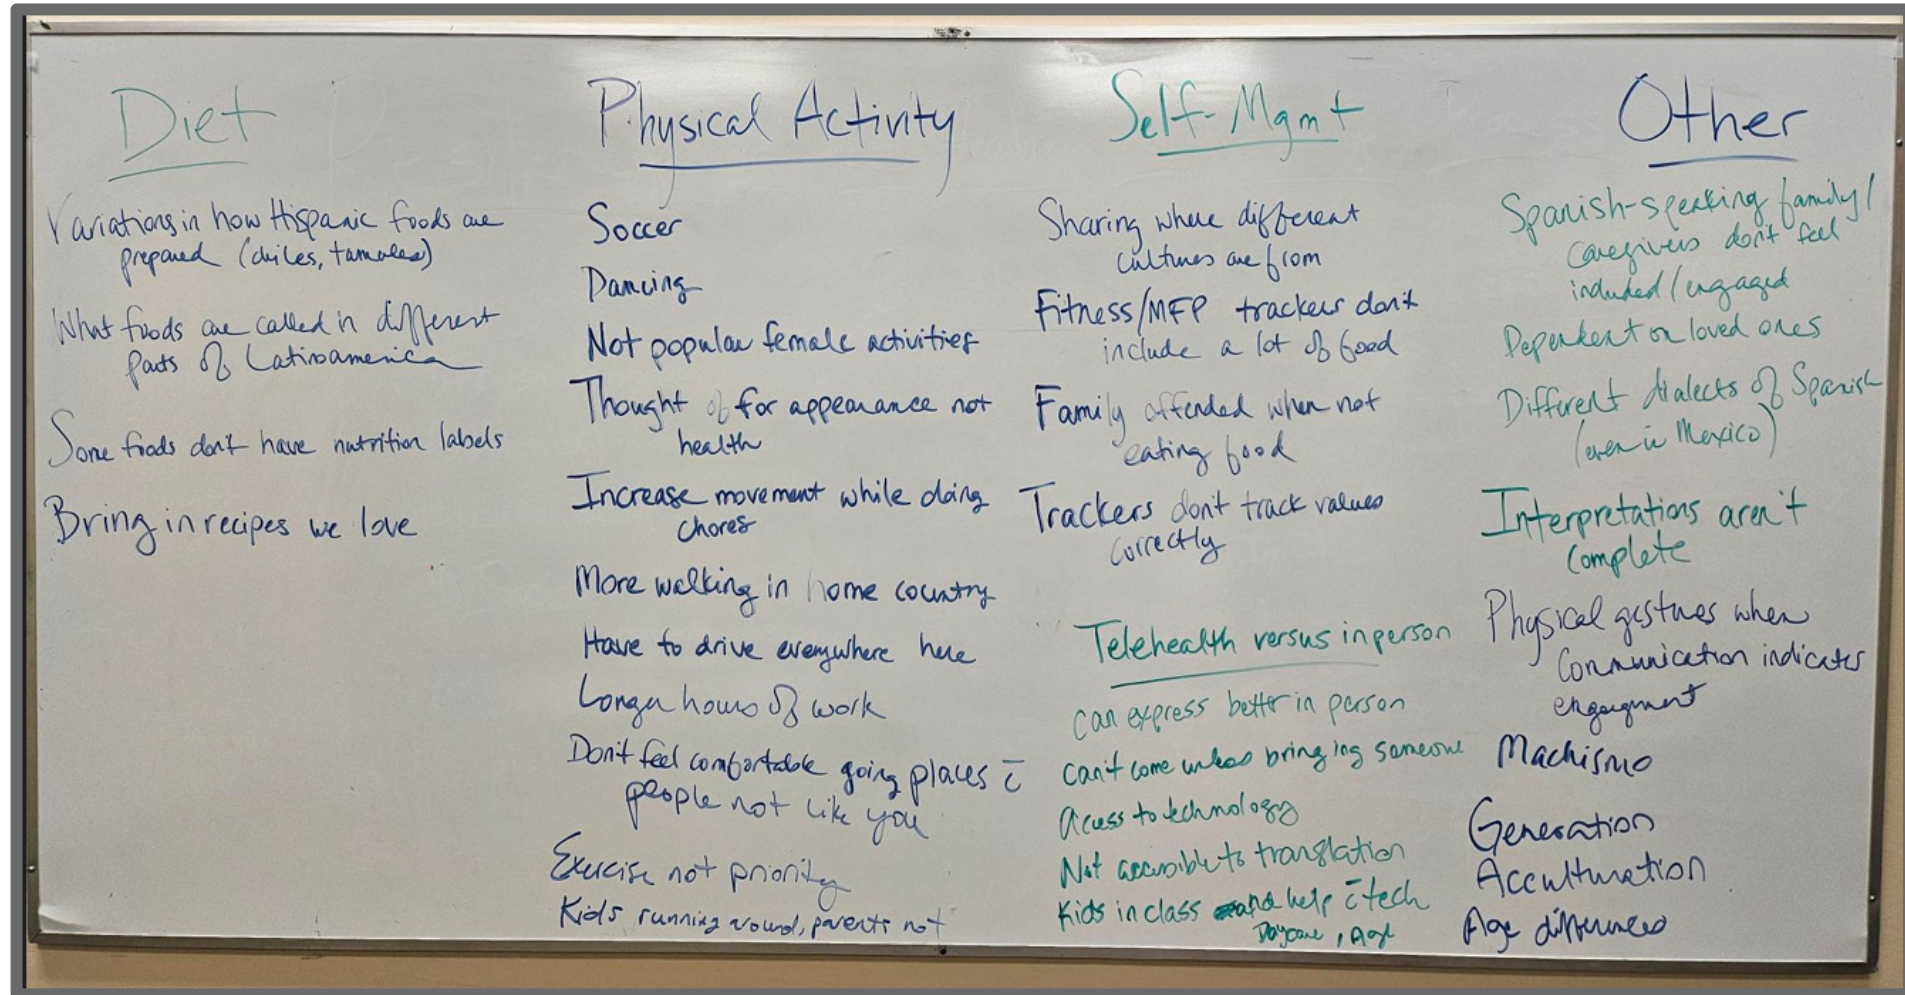 Diet
Variations in how Hispanic foods are
prepared (chiles, tamales)
What foods are called in different
parts of Latinoamerica
Some foods don't have nutrition labels
Bring in recipes we love
Physical Activity
Soccer
Dancing
Not popular female activities
Thought of for appearance not
health
Increase movement while doing
chores
More walking in home country
Have to drive everywhere here
Longer hours of work
Don't feel comfortable going places c̄
people not like you
Exercise not priority
Kids running around, parents not
Self-Mgmt
Sharing where different
cultures are from
Fitness/MFP trackers don't
include a lot of food
Family offended when not
eating food
Trackers don't track values
correctly
Telehealth versus in person
can express better in person
can't come unless bringing someone
Access to technology
Not accessible to translation
Kids in class and help c̄ tech
Daycare, Age
Other
Spanish-speaking family/
caregivers don't feel
included/engaged
Dependent on loved ones
Different dialects of Spanish
(even in Mexico)
Interpretations aren't
complete
Physical gestures when
communication indicates
engagement
Machismo
Generation
Acculturation
Age differences